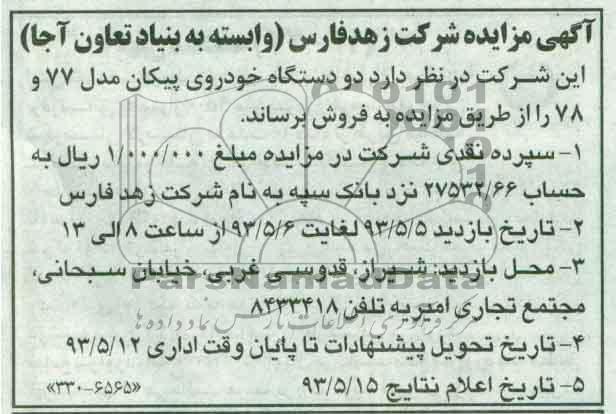 آگهی مزایده شرکت زهدفارس (وابسته به بنیاد تعاون آجا)
این شرکت در نظر دارد دو دستگاه خودروی پیکان مدل ۷۷ و
۷۸ را از طریق مزایده به فروش برساند.
۱- سپرده نقدی شرکت در مزایده مبلغ ۱/۰۰۰/۰۰۰ ریال به
حساب ۲۷۵۳۲/۶۶ نزد بانک سپه به نام شرکت زهد فارس
۲- تاریخ بازدید ۹۳/۵/۵ لغایت ۹۳/۵/۶ از ساعت ۸ الی ۱۳
۳- محل بازدید: شیراز، قدوسی غربی، خیابان سبحانی،
ParsNamadData
مجتمع تجاری امیر به تلفن ۸۴۳۳۴۱۸
۴- تاریخ تحویل پیشنهادات تا پایان وقت اداری ۹۳/۵/۱۲
۵- تاریخ اعلام نتایج ۹۳/۵/۱۵
«۳۳۰-۶۵۶۵»